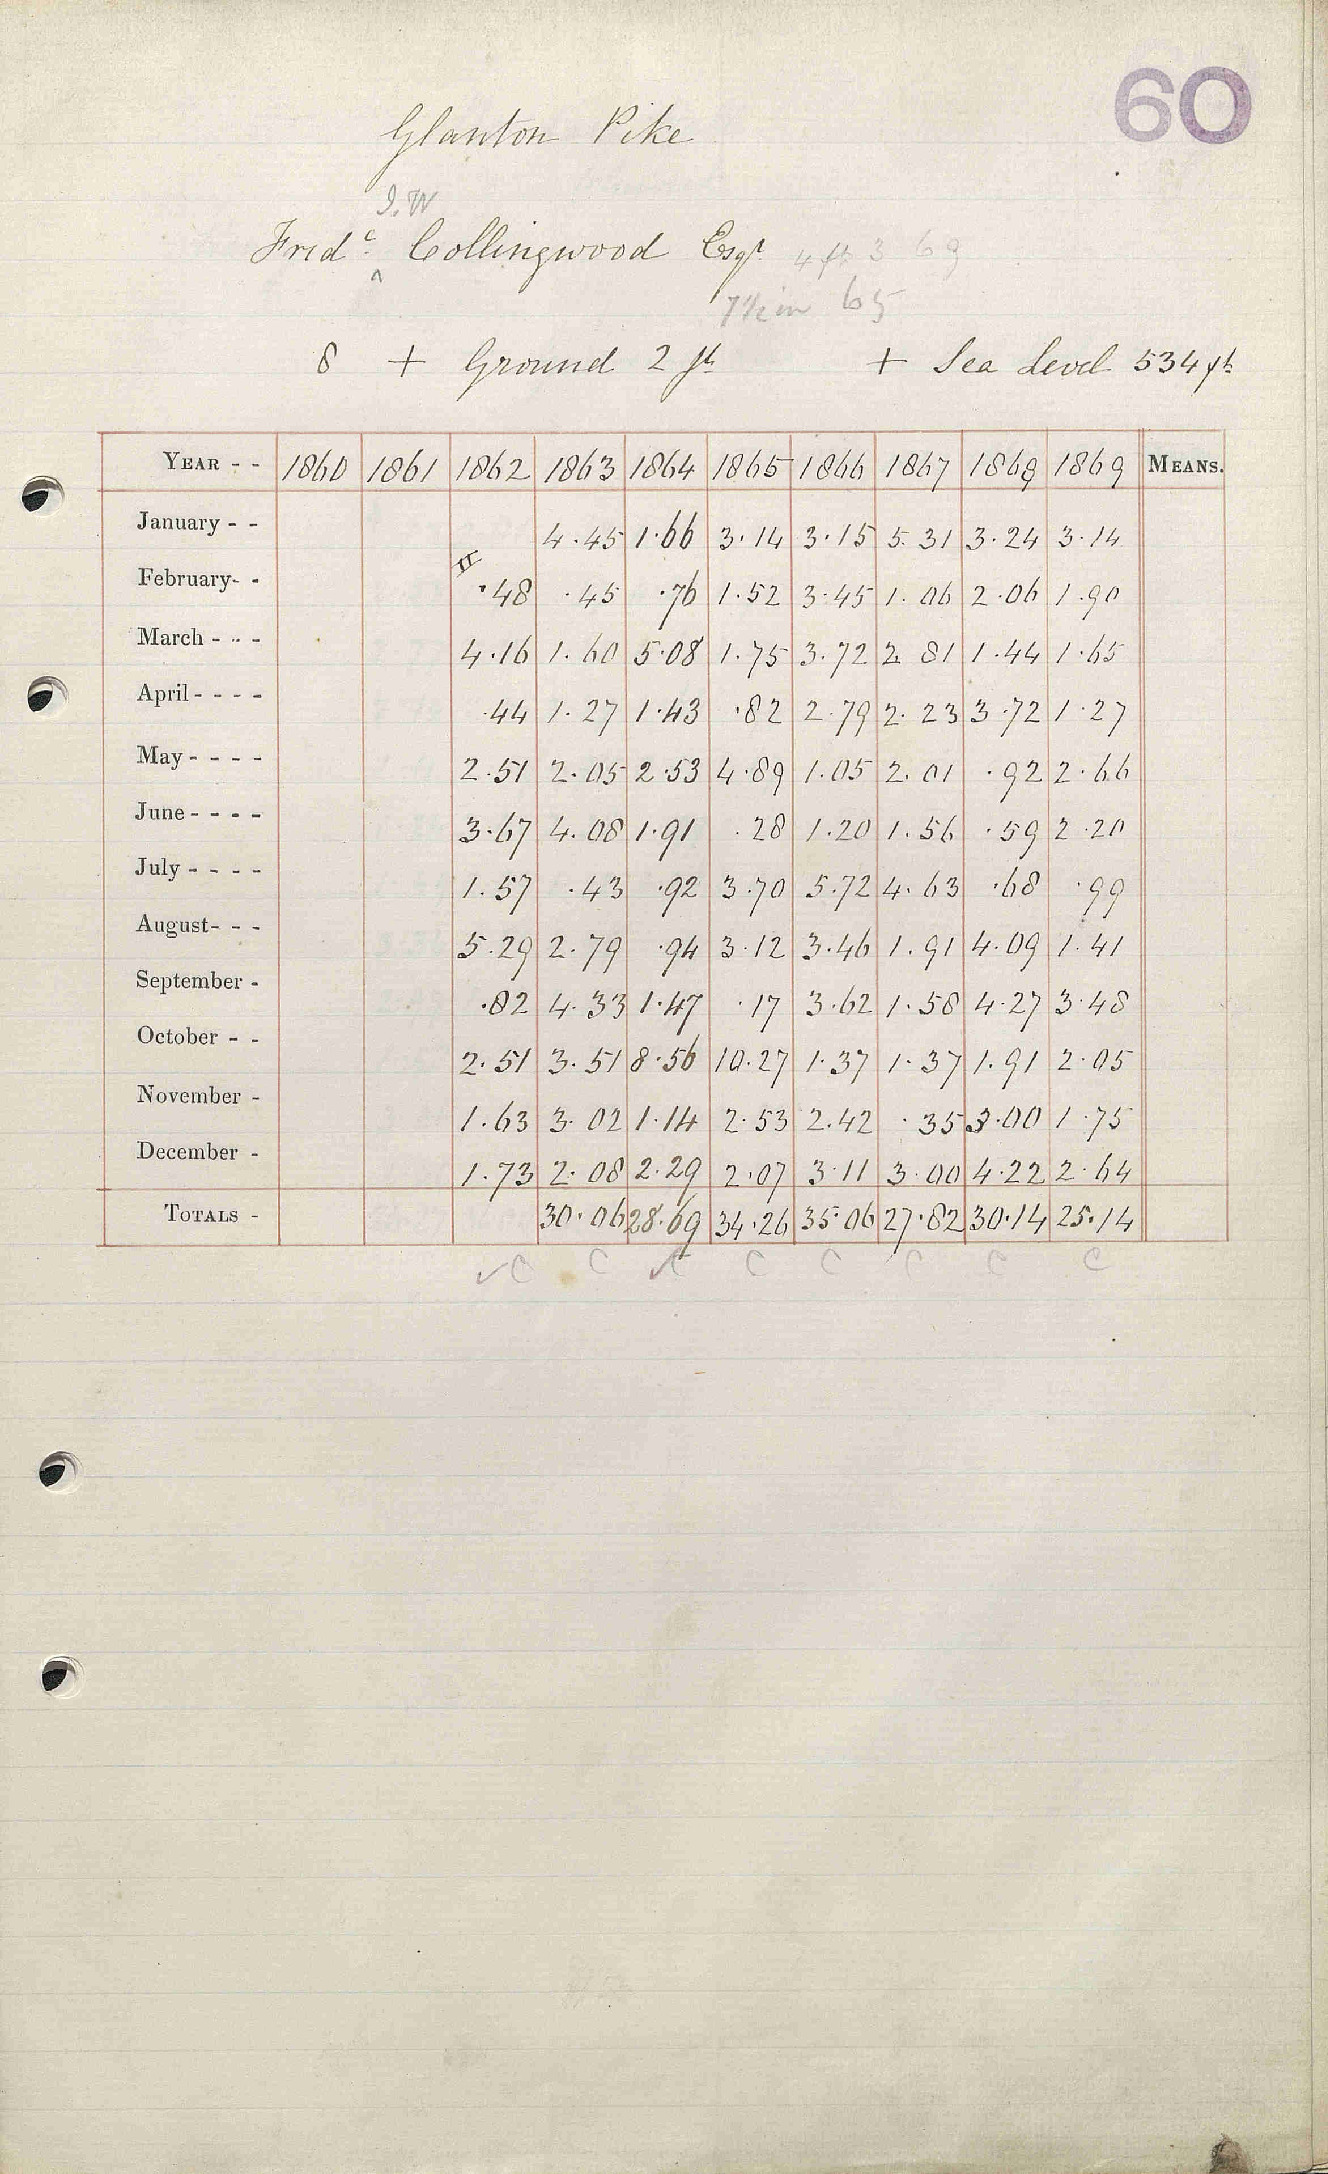 60
Glanton Pike
J.W
Fredc. Collingwood Esqr 4 ft 3 69
^
7½in 65
8 + Ground 2 ft + Sea Level 534 ft
YEAR - - 1860 1861 1862 1863 1864 1865 1866 1867 1868 1869 MEANS.
January - - 4.45 1.66 3.14 3.15 5.31 3.24 3.14
February- - II .48 .45 .76 1.52 3.45 1.06 2.06 1.90
March - - - 4.16 1.60 5.08 1.75 3.72 2.81 1.44 1.65
April - - - - .44 1.27 1.43 .82 2.79 2.23 3.72 1.27
May - - - - 2.51 2.05 2.53 4.89 1.05 2.01 .92 2.66
June - - - - 3.67 4.08 1.91 .28 1.20 1.56 .59 2.20
July - - - - 1.57 .43 .92 3.70 5.72 4.63 .68 .99
August- - - 5.29 2.79 .94 3.12 3.46 1.91 4.09 1.41
September - .82 4.33 1.47 .17 3.62 1.58 4.27 3.48
October - - 2.51 3.51 8.56 10.27 1.37 1.37 1.91 2.05
November - 1.63 3.02 1.14 2.53 2.42 .35 3.00 1.75
December - 1.73 2.08 2.29 2.07 3.11 3.00 4.22 2.64
TOTALS - 30.06 28.69 34.26 35.06 27.82 30.14 25.14
✓C C ✓C C C C C C